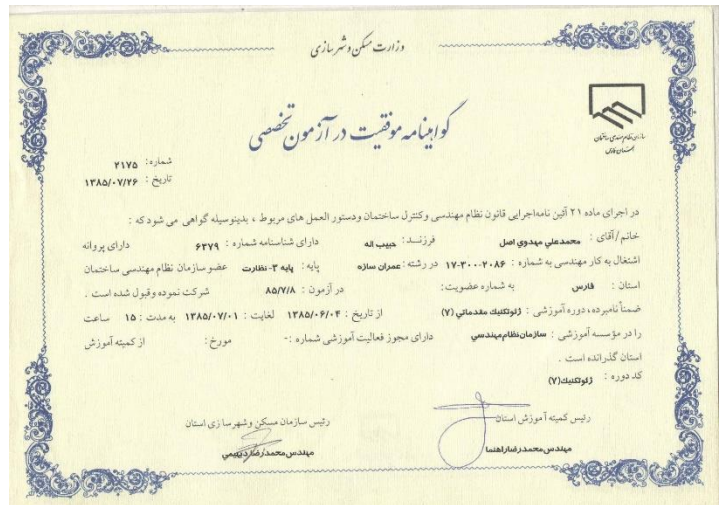 وزارت مسکن و شهرسازی
سازمان نظام مهندسی ساختمان
استان فارس
گواهینامه موفقیت در آزمون تخصصی
شماره : ۲۱۷۵
تاریخ : ۱۳۸۵/۰۷/۲۶
در اجرای ماده ۲۱ آئین نامه اجرایی قانون نظام مهندسی وکنترل ساختمان ودستور العمل های مربوط ، بدینوسیله گواهی می شود که :
خانم /آقای : محمدعلي مهدوي اصل فرزنــد : حبیب اله دارای شناسنامه شماره : ۶۳۷۹ دارای پروانه
اشتغال به کار مهندسی به شماره : ۲۰۸۶-۳۰۰-۱۷ در رشته : عمران سازه پایه : پایه ۳- نظارت عضو سازمان نظام مهندسی ساختمان
استان : فارس به شماره عضویت : در آزمون : ۸۵/۷/۸ شرکت نموده وقبول شده است .
ضمناً نامبرده ، دوره آموزشی : ژئوتکنیك مقدماتي (۷) از تاریخ : ۱۳۸۵/۰۶/۰۴ لغایت : ۱۳۸۵/۰۷/۰۱ به مدت : ۱۵ ساعت
را در مؤسسه آموزشی : سازمان نظام مهندسي دارای مجوز فعالیت آموزشی شماره : - مورخ : از کمیته آموزش
استان گذرانده است .
کد دوره : ژئوتکنیك (۷)
رئیس کمیته آموزش استان رئیس سازمان مسکن وشهرسازی استان
مهندس محمدرضا راهنما مهندس محمدرضا